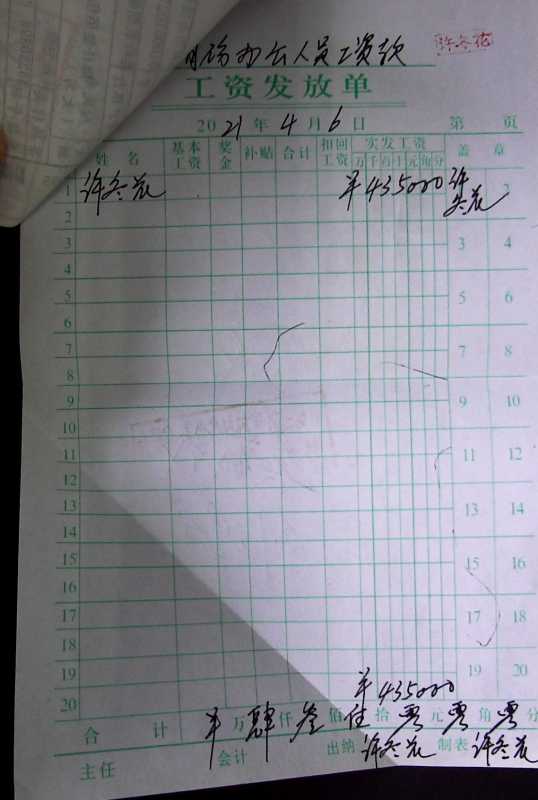 办公人员工资款 许冬花
工资发放单
2021年4月6日 第 页
姓名 基本工资 奖金 补贴 合计 扣回工资 实发工资 万千百十元角分 盖章
1 许冬花 ¥435000 许冬花 2
2
3 3 4
4
5 5 6
6
7 7 8
8
9 9 10
10
11 11 12
12
13 13 14
14
15 15 16
16
17 17 18
18
19 19 20
20 ¥435000
合计 万肆仟叁佰伍拾零元零角零分
主任 会计 出纳 许冬花 制表 许冬花